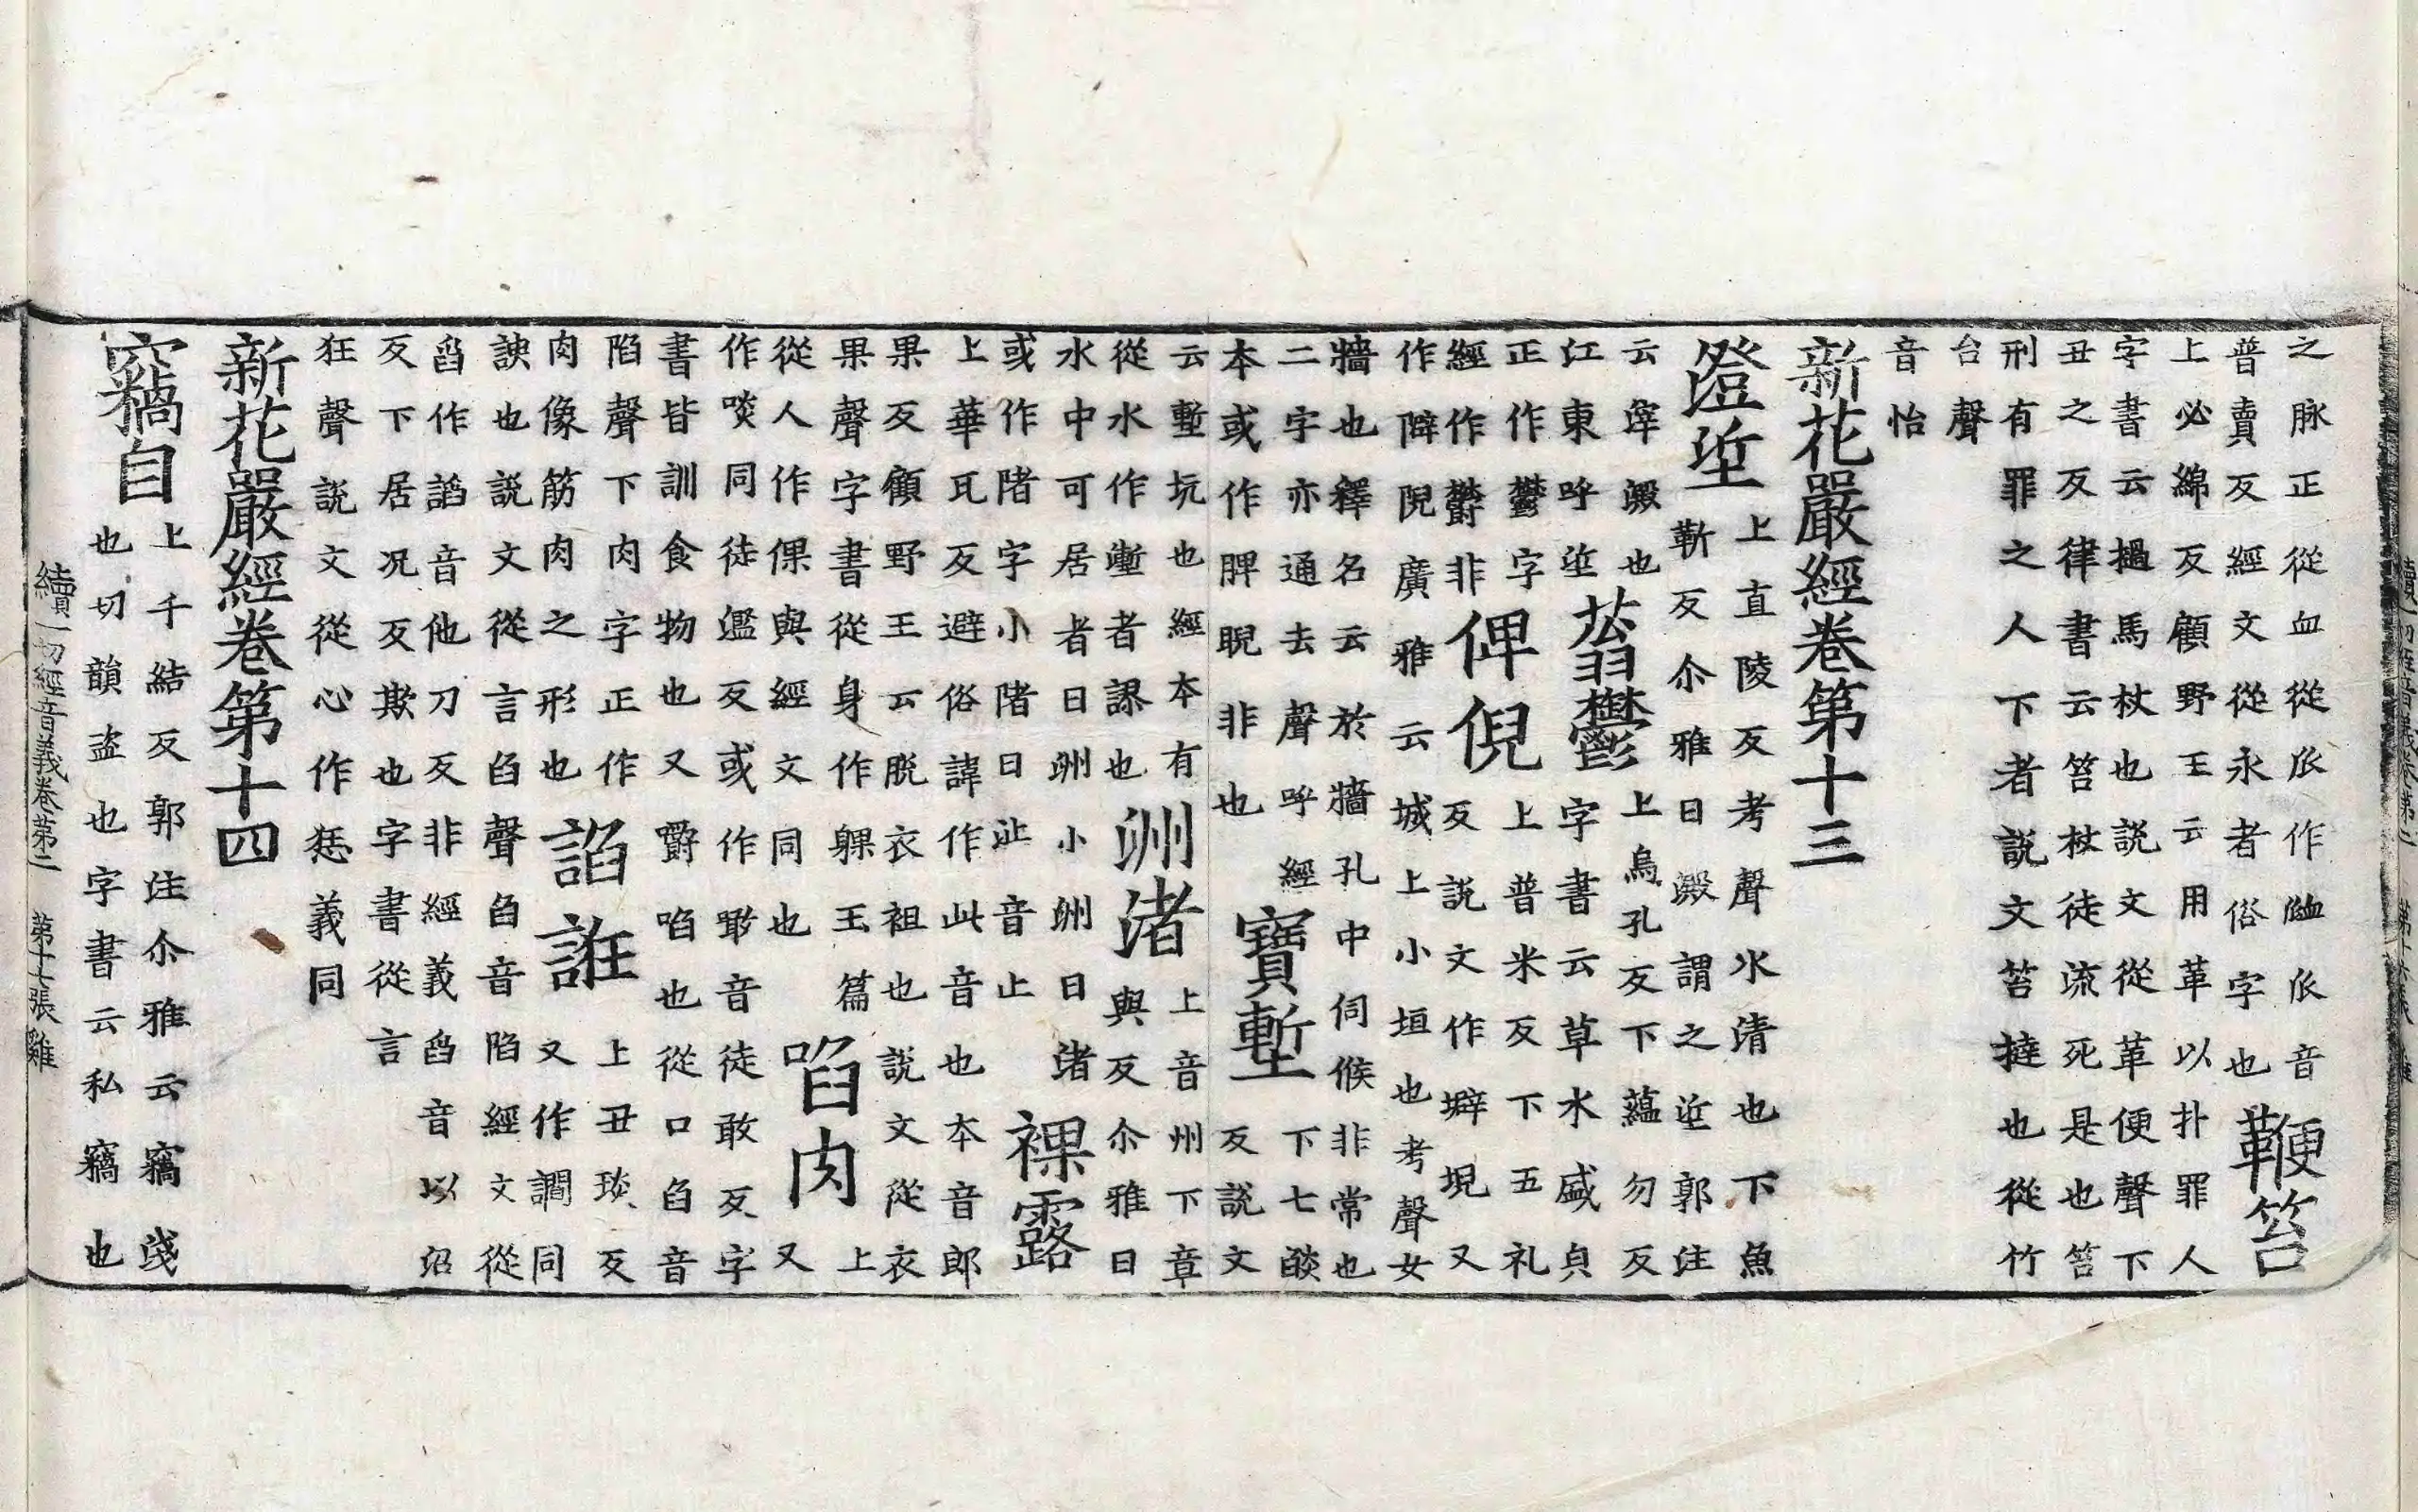 之脉正從血從𠂢作衇𠂢音
普賣反經文從永者俗字也
鞭笞
上必綿反顧野王云用革以扑罪人
字書云撾馬杖也説文從革便聲下
丑之反律書云笞杖徒流死是也笞
刑有罪之人下者説文笞撻也從竹
台聲
音怡
新花嚴經卷第十三
澄垽
上直陵反考聲水清也下魚
靳反尒雅曰澱謂之垽郭注
云滓澱也
江東呼垽
蓊鬱
上烏孔反下蘊勿反
字書云草木盛皃
正作鬱字
經作欝非
俾倪
上普米反下五礼
反説文作壀堄又
作隦堄廣雅云城上小垣也考聲女
墻也釋名云於牆孔中伺候非常也
二字亦通去聲呼經
本或作脾睨非也
寶塹
下七醶
反説文
云塹坑也經本有
從水作壍者誤也
洲渚
上音州下章
與反尒雅曰
水中可居者曰洲小洲曰渚
或作陼字小陼曰沚音止
裸露
上華瓦反避俗諱作此音也本音郎
果反顧野王云脫衣袒也説文從衣
果聲字書從身作躶玉篇
從人作倮與經文同也
啗肉
上
又
作啖同徒濫反或作噉音徒敢反字
書皆訓食物也又嚼啗也從口臽音
陷聲下肉字正作
肉像筋肉之形也
諂誑
上丑琰反
又作讇同
諛也説文從言臽聲臽音陷經文從
舀作謟音他刀反非經義舀音以沼
反下居况反欺也字書從言
狂聲説文從心作㤮義同
新花嚴經卷第十四
竊自
上千結反郭注尒雅云竊淺
也切韻盜也字書云私竊也
續一切經音義卷第二　第十七張　雞